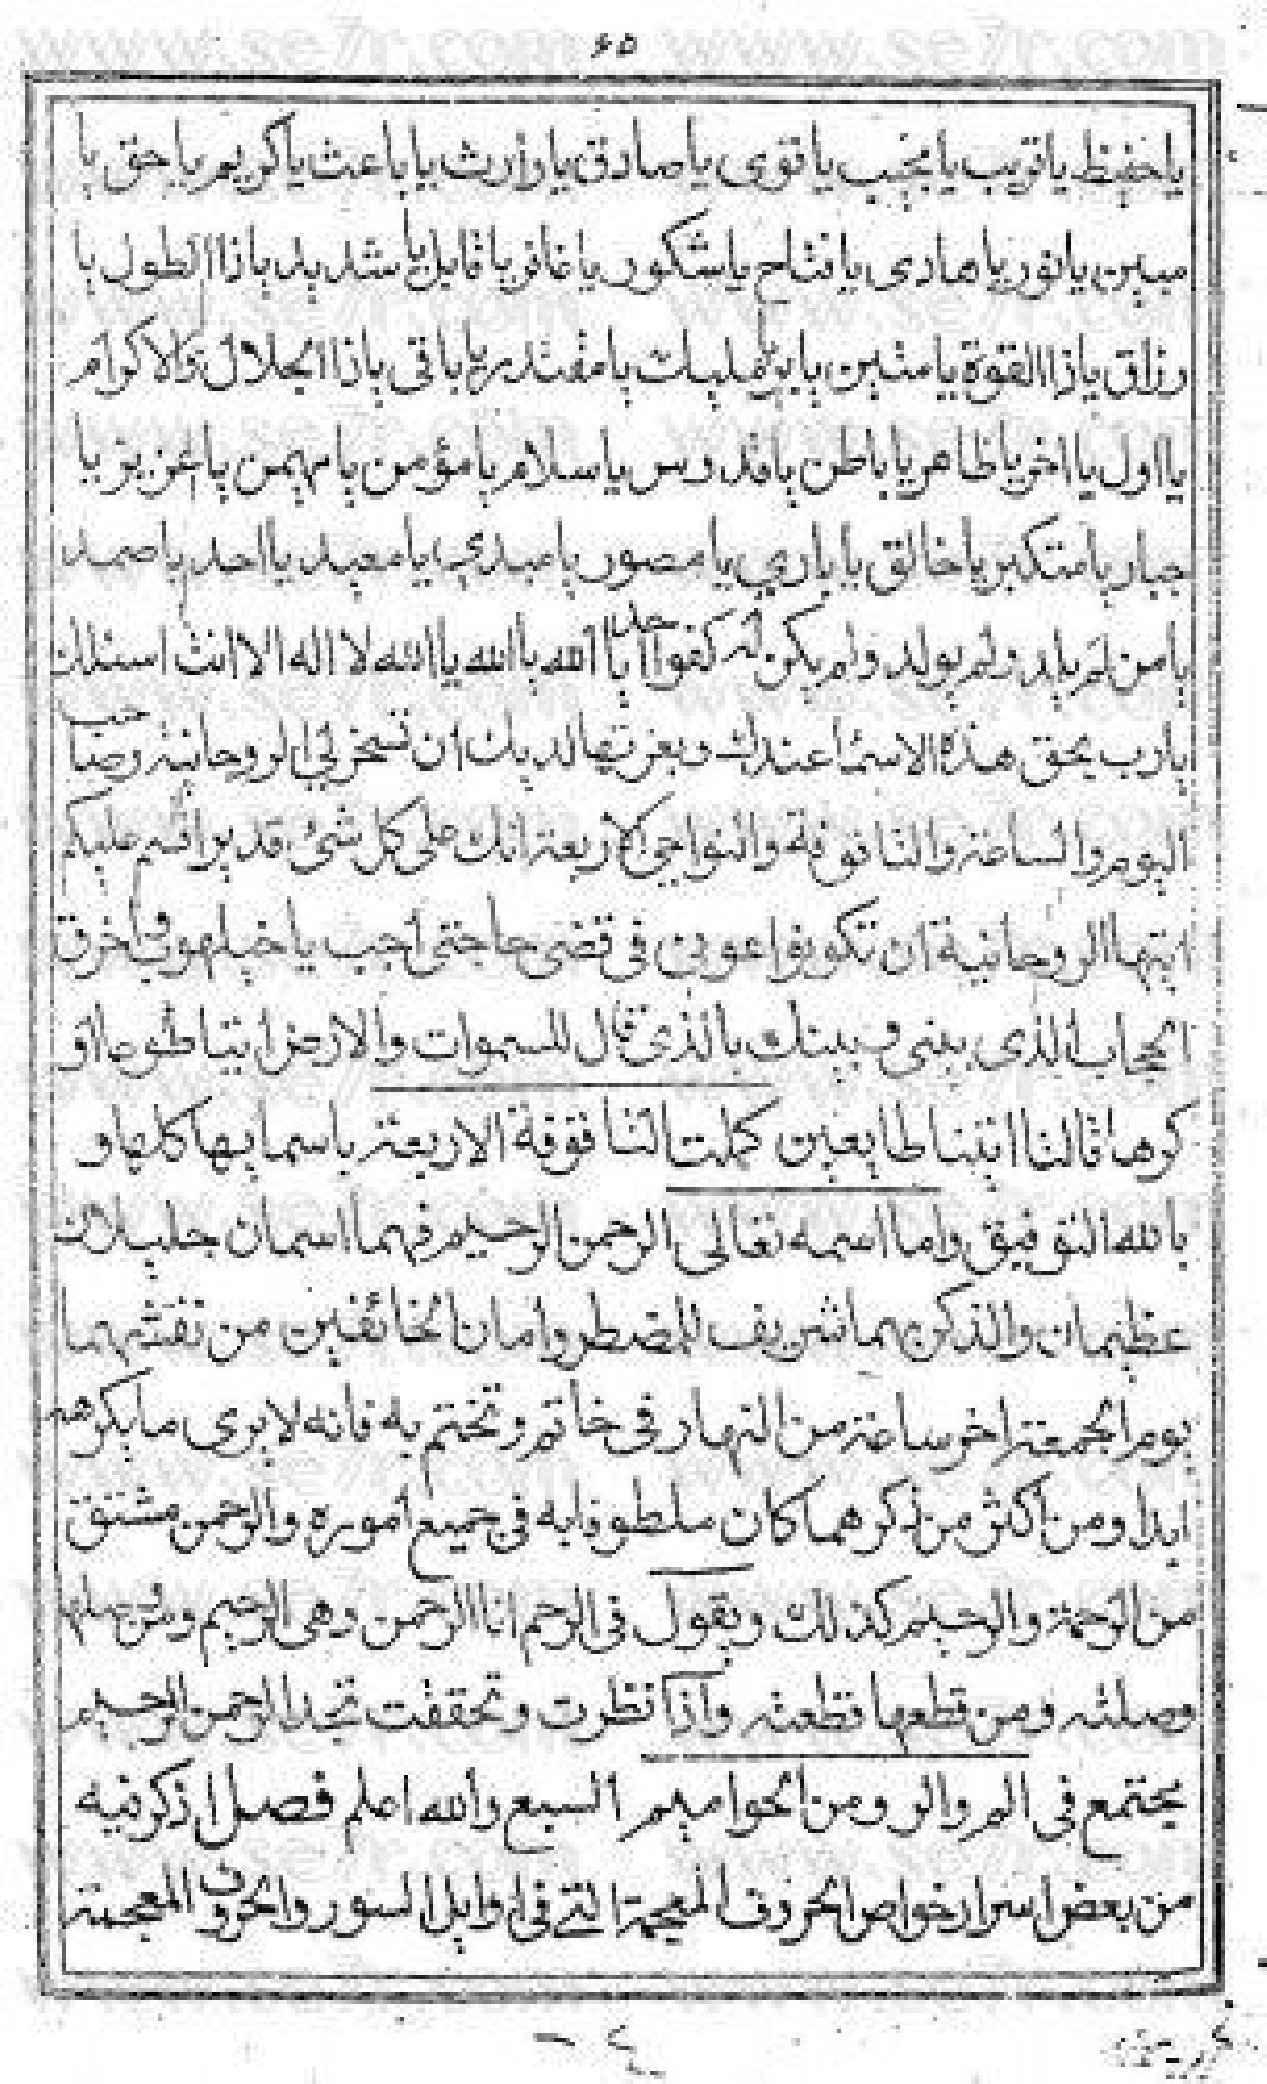 ٦٥
ياحفيظ ياقريب يامجيب ياقوى ياصادق ياوارث ياباعث ياكريم ياحق يا
مبين يانور ياهادى يافتاح ياشكور ياغافر ياقابل ياشديد ياذا الطول يا
رزاق ياذا القوة يامتين يابر يامليك يامقتدر ياباقى ياذا الجلال والاكرام
يااول يااخر ياظاهر ياباطن ياقدوس ياسلام يامؤمن يامهيمن ياعزيز يا
جبار يامتكبر ياخالق ياباري يامصور يامبدي يامعيد يااحد ياصمد
يامن لم يلد ولم يولد ولم يكن له كفوا احد ياالله ياالله ياالله لا اله الا انت اسئلك
يارب بحق هذه الاسما عندك وبعزتها لديك ان تسخر لى الروحانية وصاحب
اليوم والساعة والنانوفة والنواحى الاربعة انك على كل شئ قدير اقسم عليكم
ايتها الروحانية ان تكونوا عونى فى قضى حاجتى اجب ياخرق
الحجاب الذى بينى وبينك بالذى قال للسموات والارض ايتيا طوعا او
كرها قالتا اتينا طايعين كملت النا فوفة الاربعة باسمايها كلها و
بالله التوفيق واما اسمه تعالى الرحمن الرحيم فهما اسمان جليلان
عظيمان والذكر بهما شريف للمضطر وامان الخائفين من نقشهما
يوم الجمعة اخر ساعة من النهار فى خاتم وتختم به فانه لا يرى ما يكرهه
ابدا ومن اكثر من ذكرهما كان ملطوفا به فى جميع اموره والرحمن مشتق
من الرحمة والرحيم كذلك ويقول فى الرحم انا الرحمن وهى الرحيم ومن وصلها
وصلته ومن قطعها قطعته واذا نظرت وتحققت تجد الرحمن الرحيم
يجتمع فى الم والر ومن الحواميم السبع والله اعلم فصل اذكر فيه
من بعض اسرار خواص الحروف المعجمة التى فى اوايل السور والحروف المعجمة